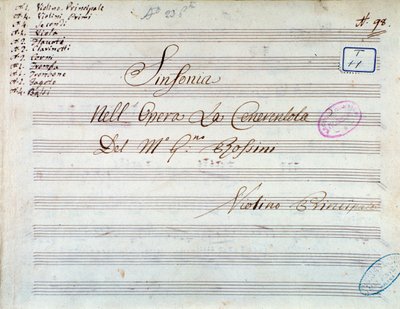 N.1. Violino Principale
N.4. Violini Primi
N.4. Secondi
N.2. Viola
N.2. Flauti
N.2. Clarinetti
N.2. Corni
N.1. Tromba
N.1. Trombone
N.1. Fagote
N.4. Bassi
N. 98.
T
H
Sinfonia
Nell' Opera La Cenerentola
Del M.º G.no Rossini
Violino Principale